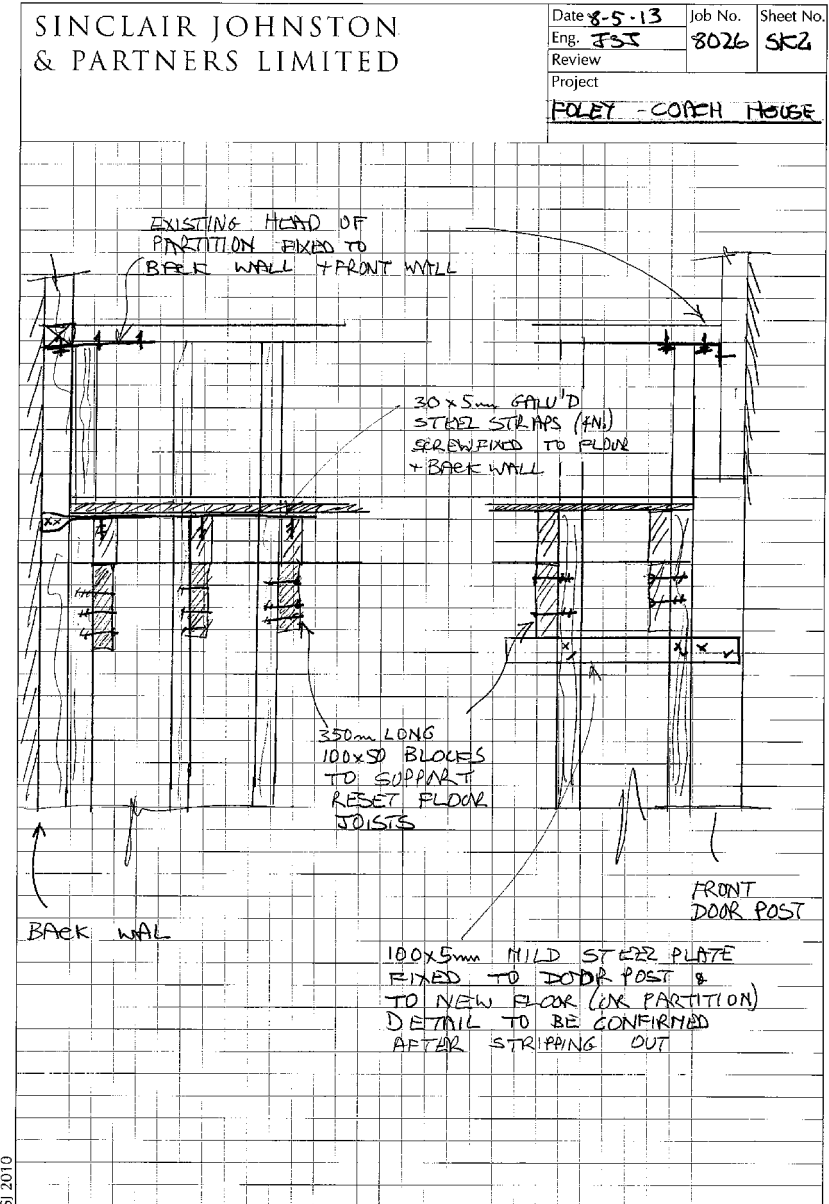 SINCLAIR JOHNSTON
& PARTNERS LIMITED
Date 8-5-13
Job No.
Sheet No.
Eng. JSJ
8026
SK2
Review
Project
FOLEY - COACH HOUSE
EXISTING HEAD OF
PARTITION FIXED TO
BACK WALL + FRONT WALL
30 x 5mm GALV'D
STEEL STRAPS (4N.)
SCREWFIXED TO FLOOR
+ BACK WALL
350mm LONG
100x50 BLOCKS
TO SUPPORT
RESET FLOOR
JOISTS
FRONT
DOOR POST
BACK WAL
100x5mm MILD STEEL PLATE
FIXED TO DOOR POST &
TO NEW FLOOR (OR PARTITION)
DETAIL TO BE CONFIRMED
AFTER STRIPPING OUT
SJ 2010